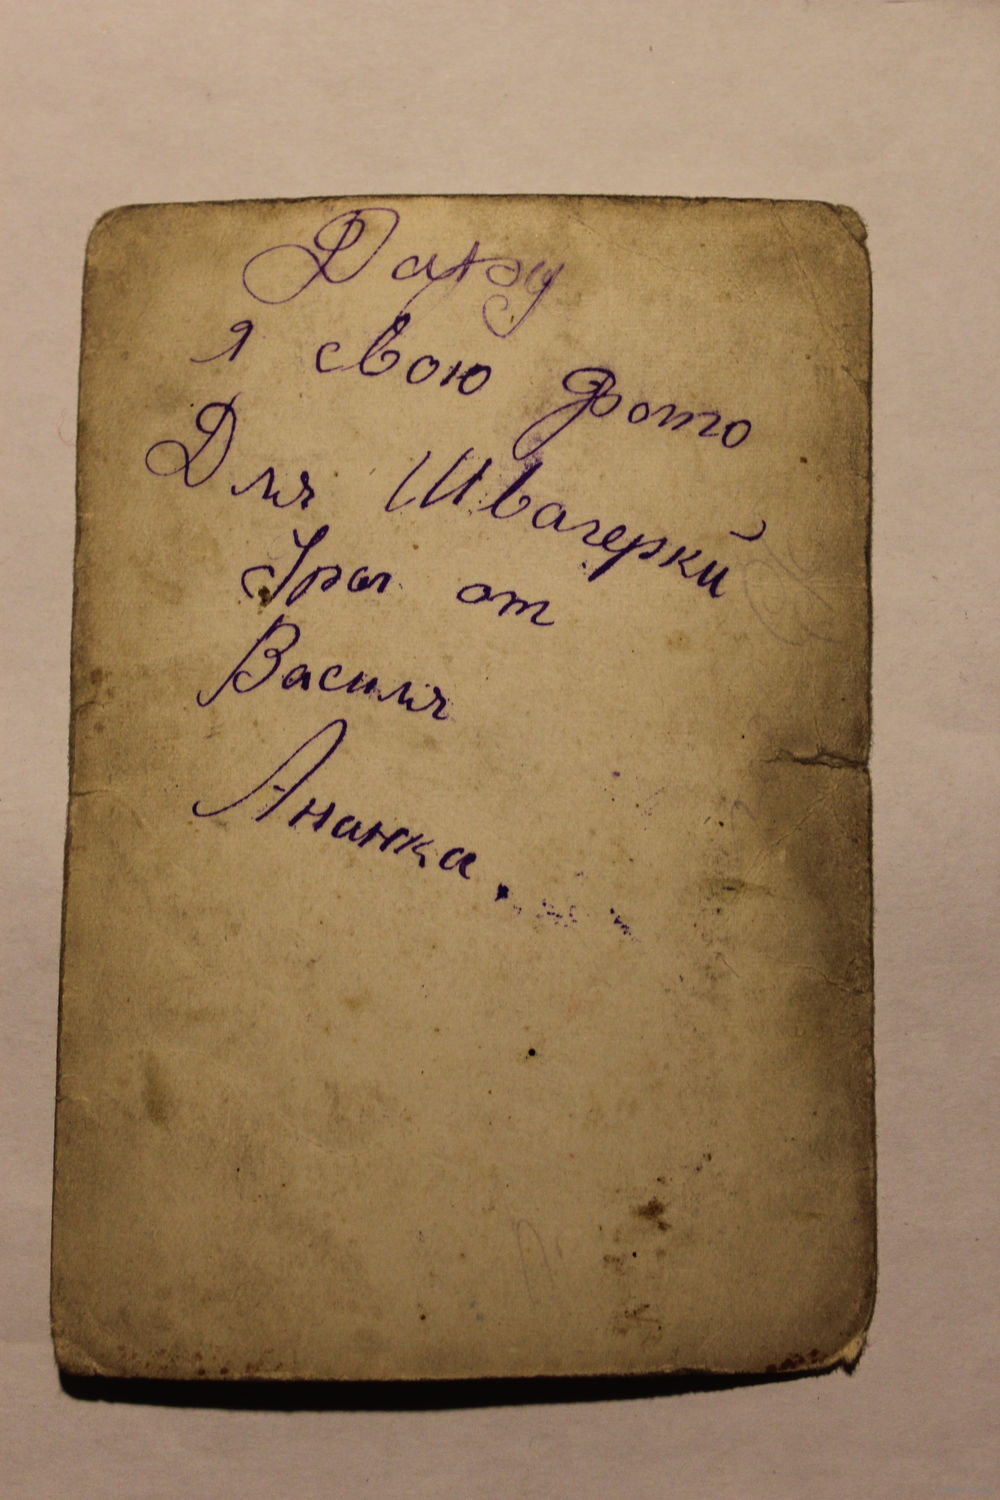 Дарю
я свою фото
Для Швагерки
Іры от
Василя
Ананка.